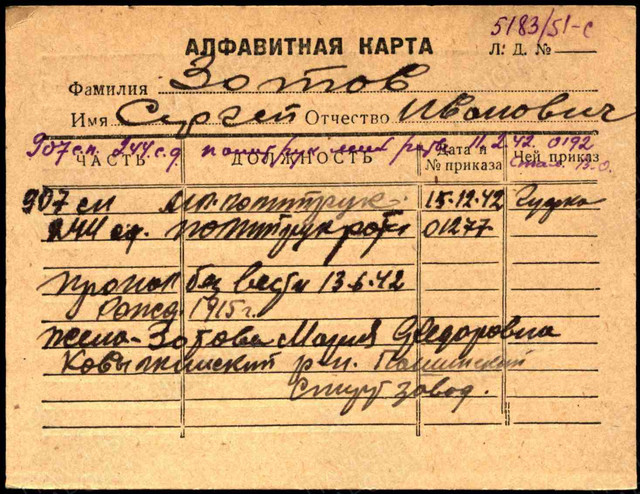 5183/51-с
АЛФАВИТНАЯ КАРТА Л. Д. №
Фамилия Зотов
Имя Сергей Отчество Иванович
907 с.п. 244 с.д. политрук мин роты 11.2.42. 0192
ЧАСТЬ ДОЛЖНОСТЬ Дата и № приказа Чей приказ
907 сп мл. политрук 15.12.42
244 сд. политрук роты 01277
пропал без вести 13.6.42
Рожд. 1915 г.
жена - Зотова Мария Федоровна
Ковылкинский р-н.
Спирт завод.